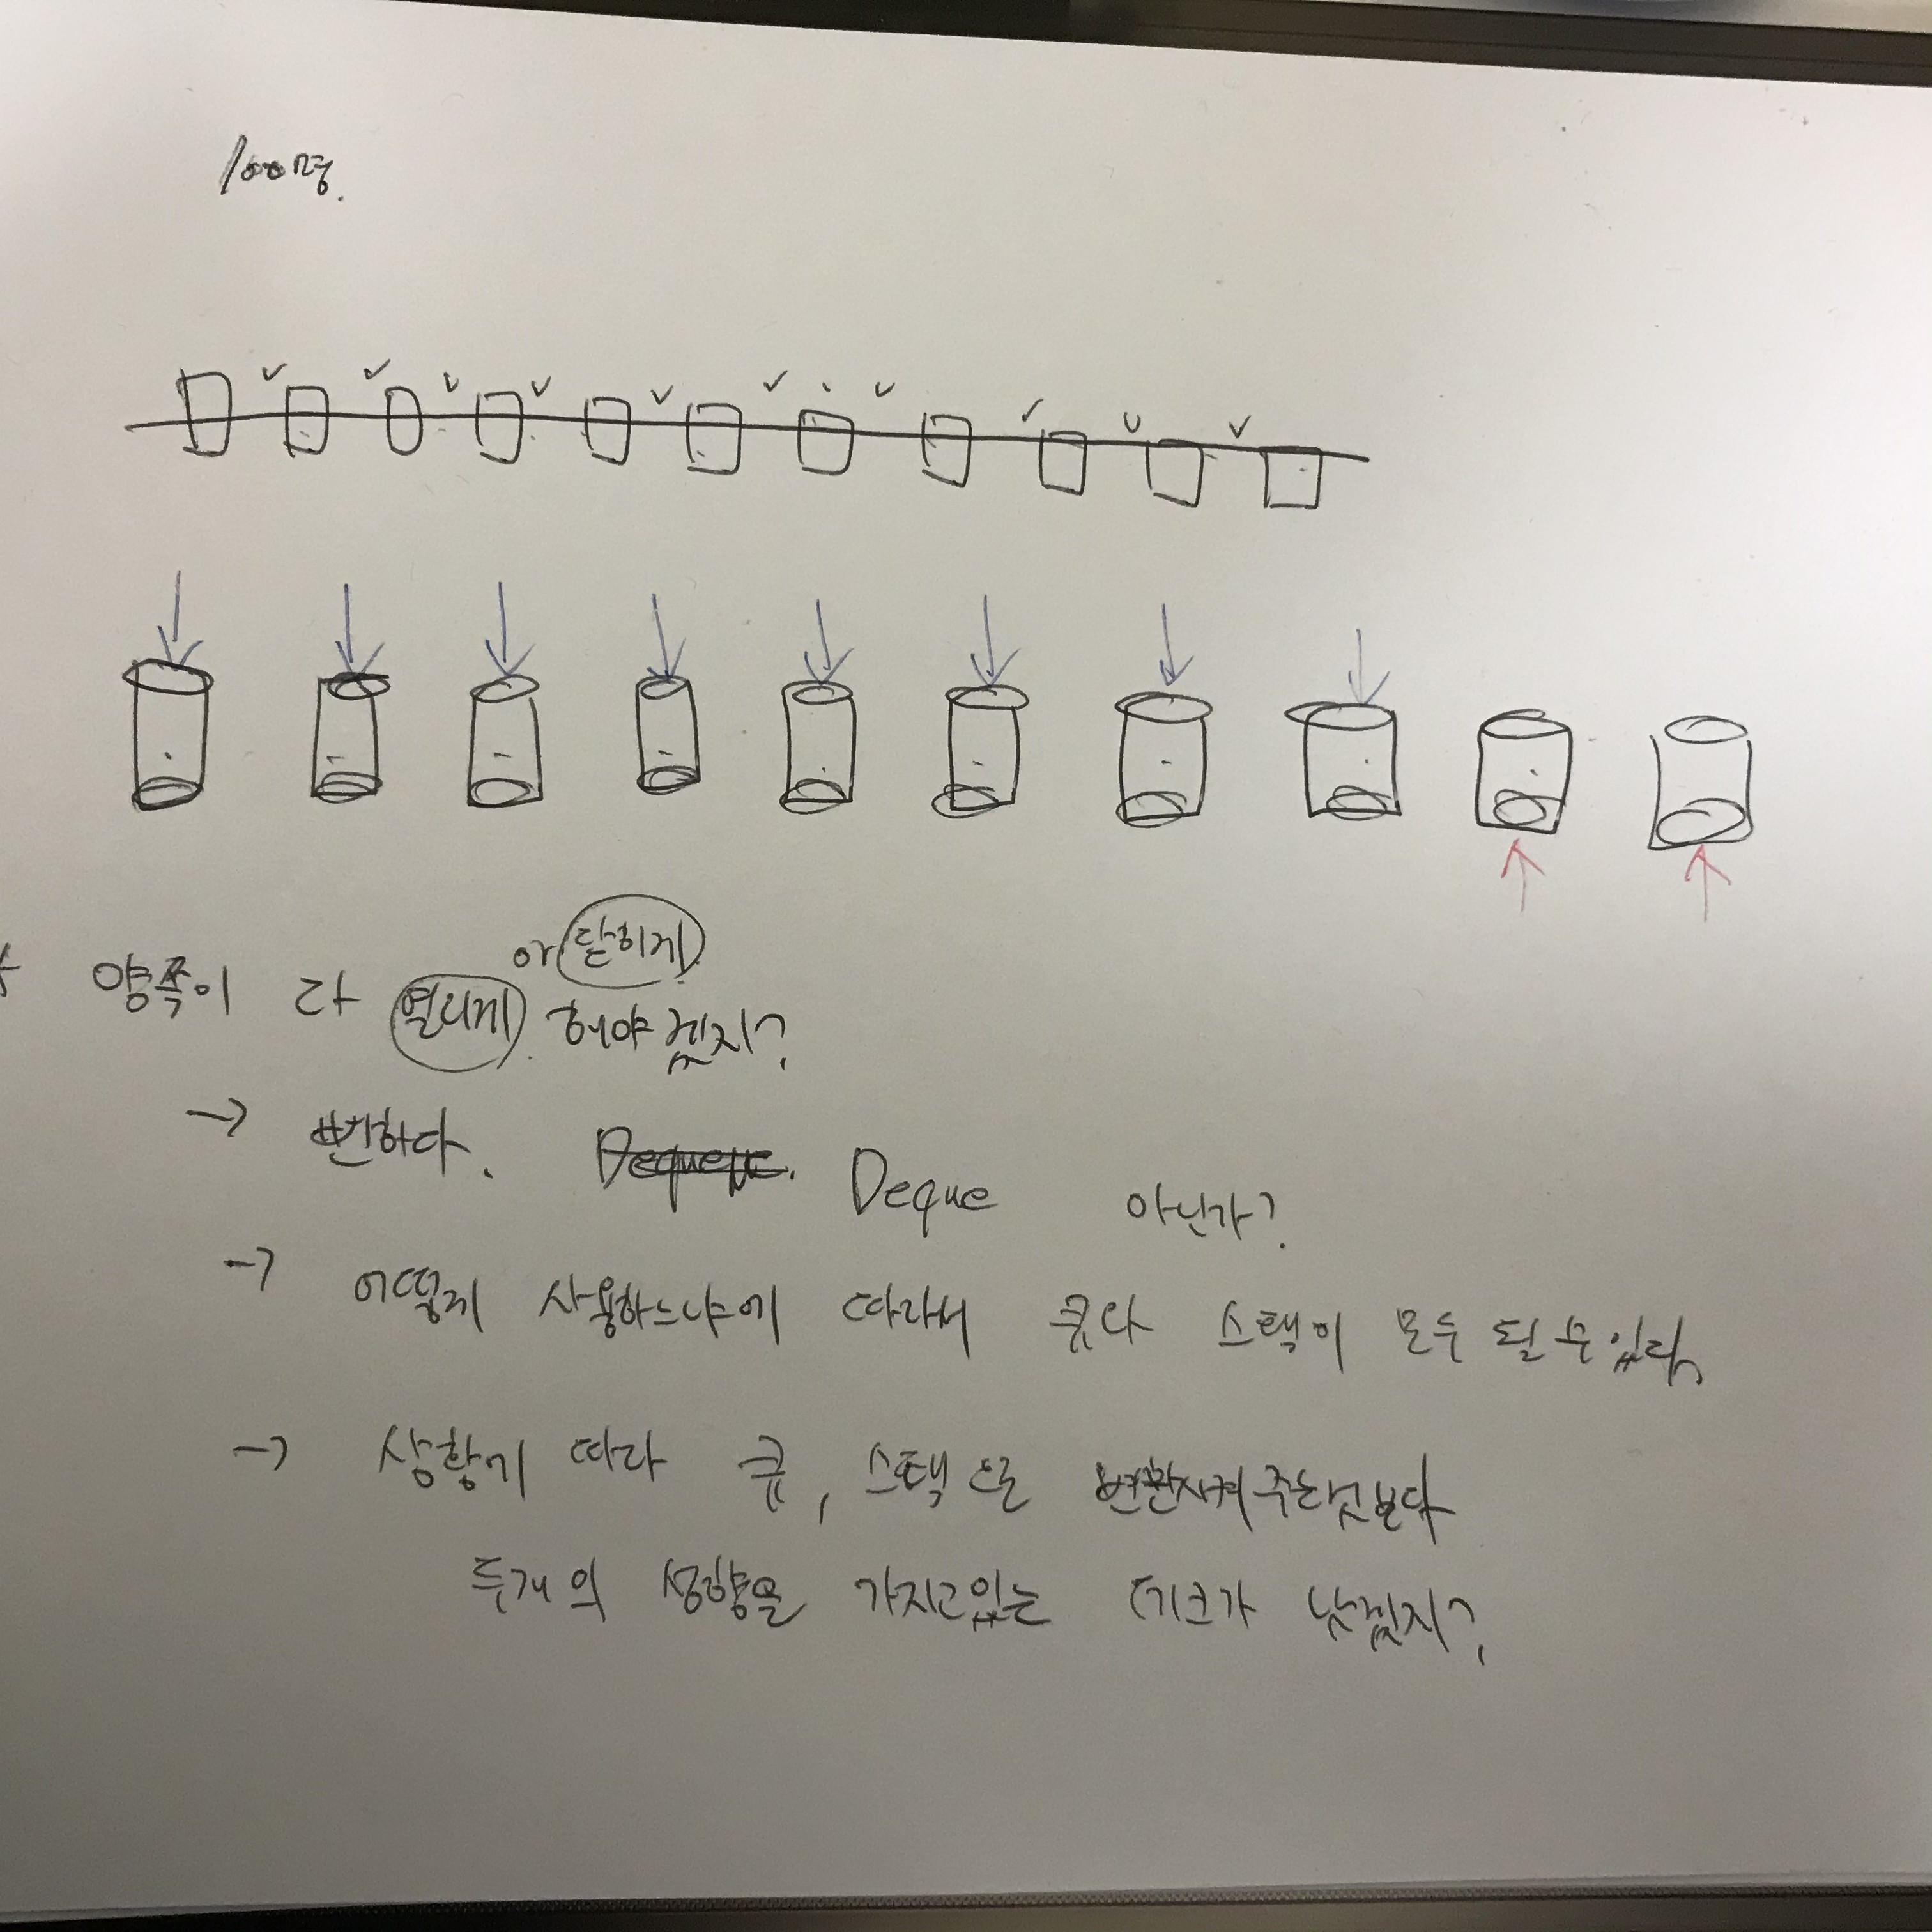 100명.
or 닫히게
양쪽이 다 열리게 해야겠지?
→ 뻔하다. Deque 아닌가?
→ 어떻게 사용하느냐에 따라서 큐나 스택이 모두 될 수 있다.
→ 상황에 따라 큐, 스택으로 변환시켜주는것보다
두개의 성향을 가지고있는 데크가 낫겠지?